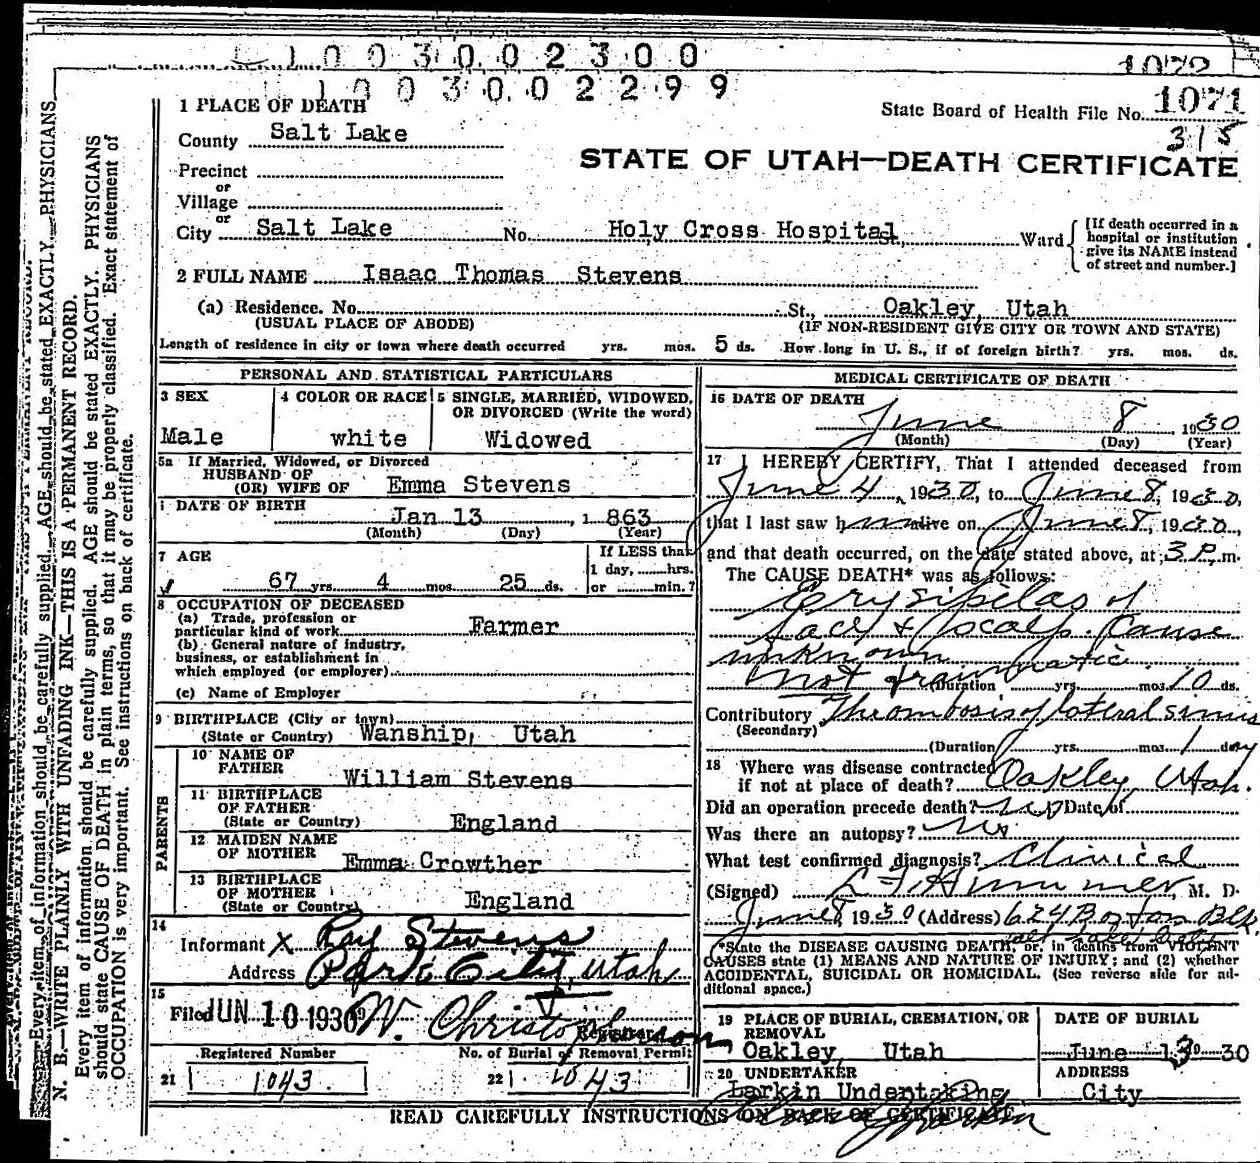 1003002300
1072
1003002299
1 PLACE OF DEATH
State Board of Health File No. 1071
County Salt Lake
315
STATE OF UTAH—DEATH CERTIFICATE
Precinct
or
Village
or
City Salt Lake No. Holy Cross Hospital, Ward
[If death occurred in a hospital or institution give its NAME instead of street and number.]
2 FULL NAME Isaac Thomas Stevens
(a) Residence. No. St., Oakley, Utah
(USUAL PLACE OF ABODE) (IF NON-RESIDENT GIVE CITY OR TOWN AND STATE)
Length of residence in city or town where death occurred yrs. mos. 5 ds. How long in U. S., if of foreign birth? yrs. mos. ds.
PERSONAL AND STATISTICAL PARTICULARS
3 SEX 4 COLOR OR RACE 5 SINGLE, MARRIED, WIDOWED, OR DIVORCED (Write the word)
Male white Widowed
5a If Married, Widowed, or Divorced
HUSBAND OF
(OR) WIFE OF Emma Stevens
DATE OF BIRTH
Jan 13, 1863
(Month) (Day) (Year)
7 AGE If LESS than
1 day, hrs.
67 yrs. 4 mos. 25 ds. or min.?
8 OCCUPATION OF DECEASED
(a) Trade, profession or
particular kind of work Farmer
(b) General nature of industry,
business, or establishment in
which employed (or employer)
(c) Name of Employer
9 BIRTHPLACE (City or town)
(State or Country) Wanship, Utah
PARENTS
10 NAME OF
FATHER William Stevens
11 BIRTHPLACE
OF FATHER
(State or Country) England
12 MAIDEN NAME
OF MOTHER Emma Crowther
13 BIRTHPLACE
OF MOTHER
(State or Country) England
14
Informant X Ray Stevens
Address Park City, Utah
15
Filed JUN 10 1930 W. Christopherson
Registrar
Registered Number No. of Burial or Removal Permit
21 1043 22 1043
MEDICAL CERTIFICATE OF DEATH
16 DATE OF DEATH
June 8 1930
(Month) (Day) (Year)
17 I HEREBY CERTIFY, That I attended deceased from
June 4, 1930, to June 8, 1930,
that I last saw him alive on June 8, 1930,
and that death occurred, on the date stated above, at 3 P. m.
The CAUSE DEATH* was as follows:
Erysipelas of
face & scalp. Cause
unknown
not traumatic
(Duration yrs. mos. 10 ds.
Contributory Thrombosis of lateral sinus
(Secondary)
(Duration yrs. mos. 1 day
18 Where was disease contracted
if not at place of death? Oakley, Utah.
Did an operation precede death? no Date of
Was there an autopsy? No
What test confirmed diagnosis? Clinical
(Signed) M. D.
June 8 1930 (Address) 624 Boston Blk.
Salt Lake City
*State the DISEASE CAUSING DEATH, or, in deaths from VIOLENT
CAUSES state (1) MEANS AND NATURE OF INJURY; and (2) whether
ACCIDENTAL, SUICIDAL OR HOMICIDAL. (See reverse side for additional space.)
19 PLACE OF BURIAL, CREMATION, OR REMOVAL DATE OF BURIAL
Oakley, Utah June 13 30
20 UNDERTAKER ADDRESS
Larkin Undertaking City
READ CAREFULLY INSTRUCTIONS ON BACK OF CERTIFICATE
N. B.—WRITE PLAINLY WITH UNFADING INK—THIS IS A PERMANENT RECORD.
Every item of information should be carefully supplied. AGE should be stated EXACTLY. PHYSICIANS
should state CAUSE OF DEATH in plain terms, so that it may be properly classified. Exact statement of
OCCUPATION is very important. See instructions on back of certificate.
Every item of information should be carefully supplied. AGE should be stated EXACTLY. PHYSICIANS